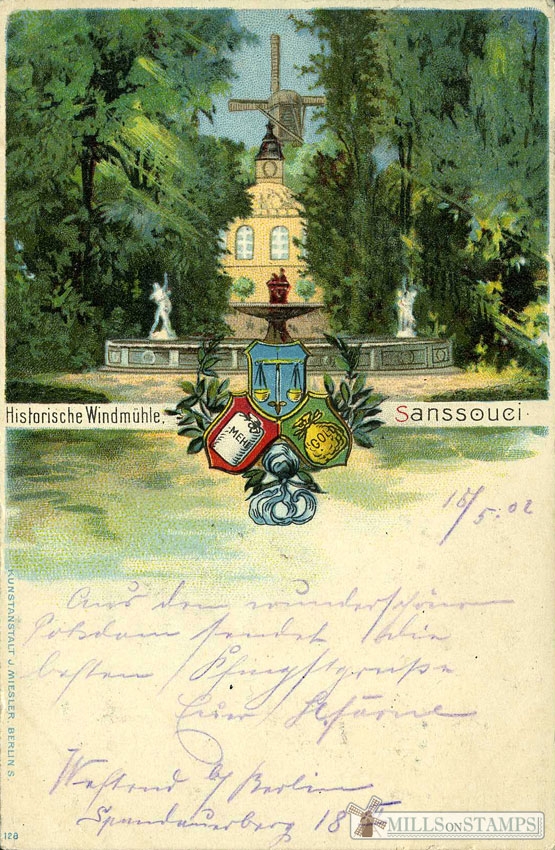 Historische Windmühle, Sanssouci.
MEHL
GOLD
16/5.02
Aus dem wunderschönen
Potsdam sendet die
besten Pfingstgrüße
Euer
Westend b/ Berlin
Spandauerberg 18
KUNSTANSTALT J. MIESLER, BERLIN S.
128
MILLS ON STAMPS